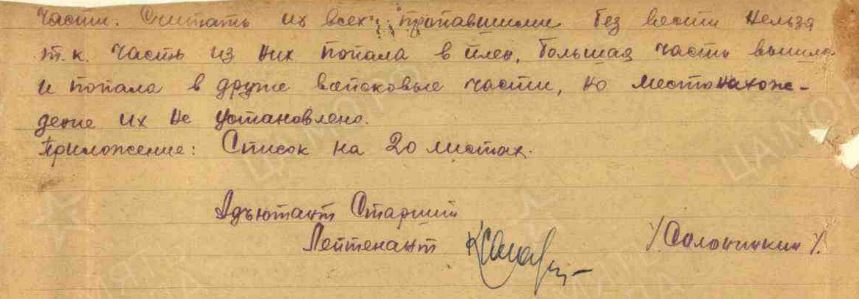 части. Считать их всех пропавшими без вести нельзя
т.к. часть из них попала в плен, большая часть вышла
и попала в друже войсковые части, но местонахож-
дение их не установлено.
Приложение: Список на 20 листах.
Адъютант Старший
Лейтенант